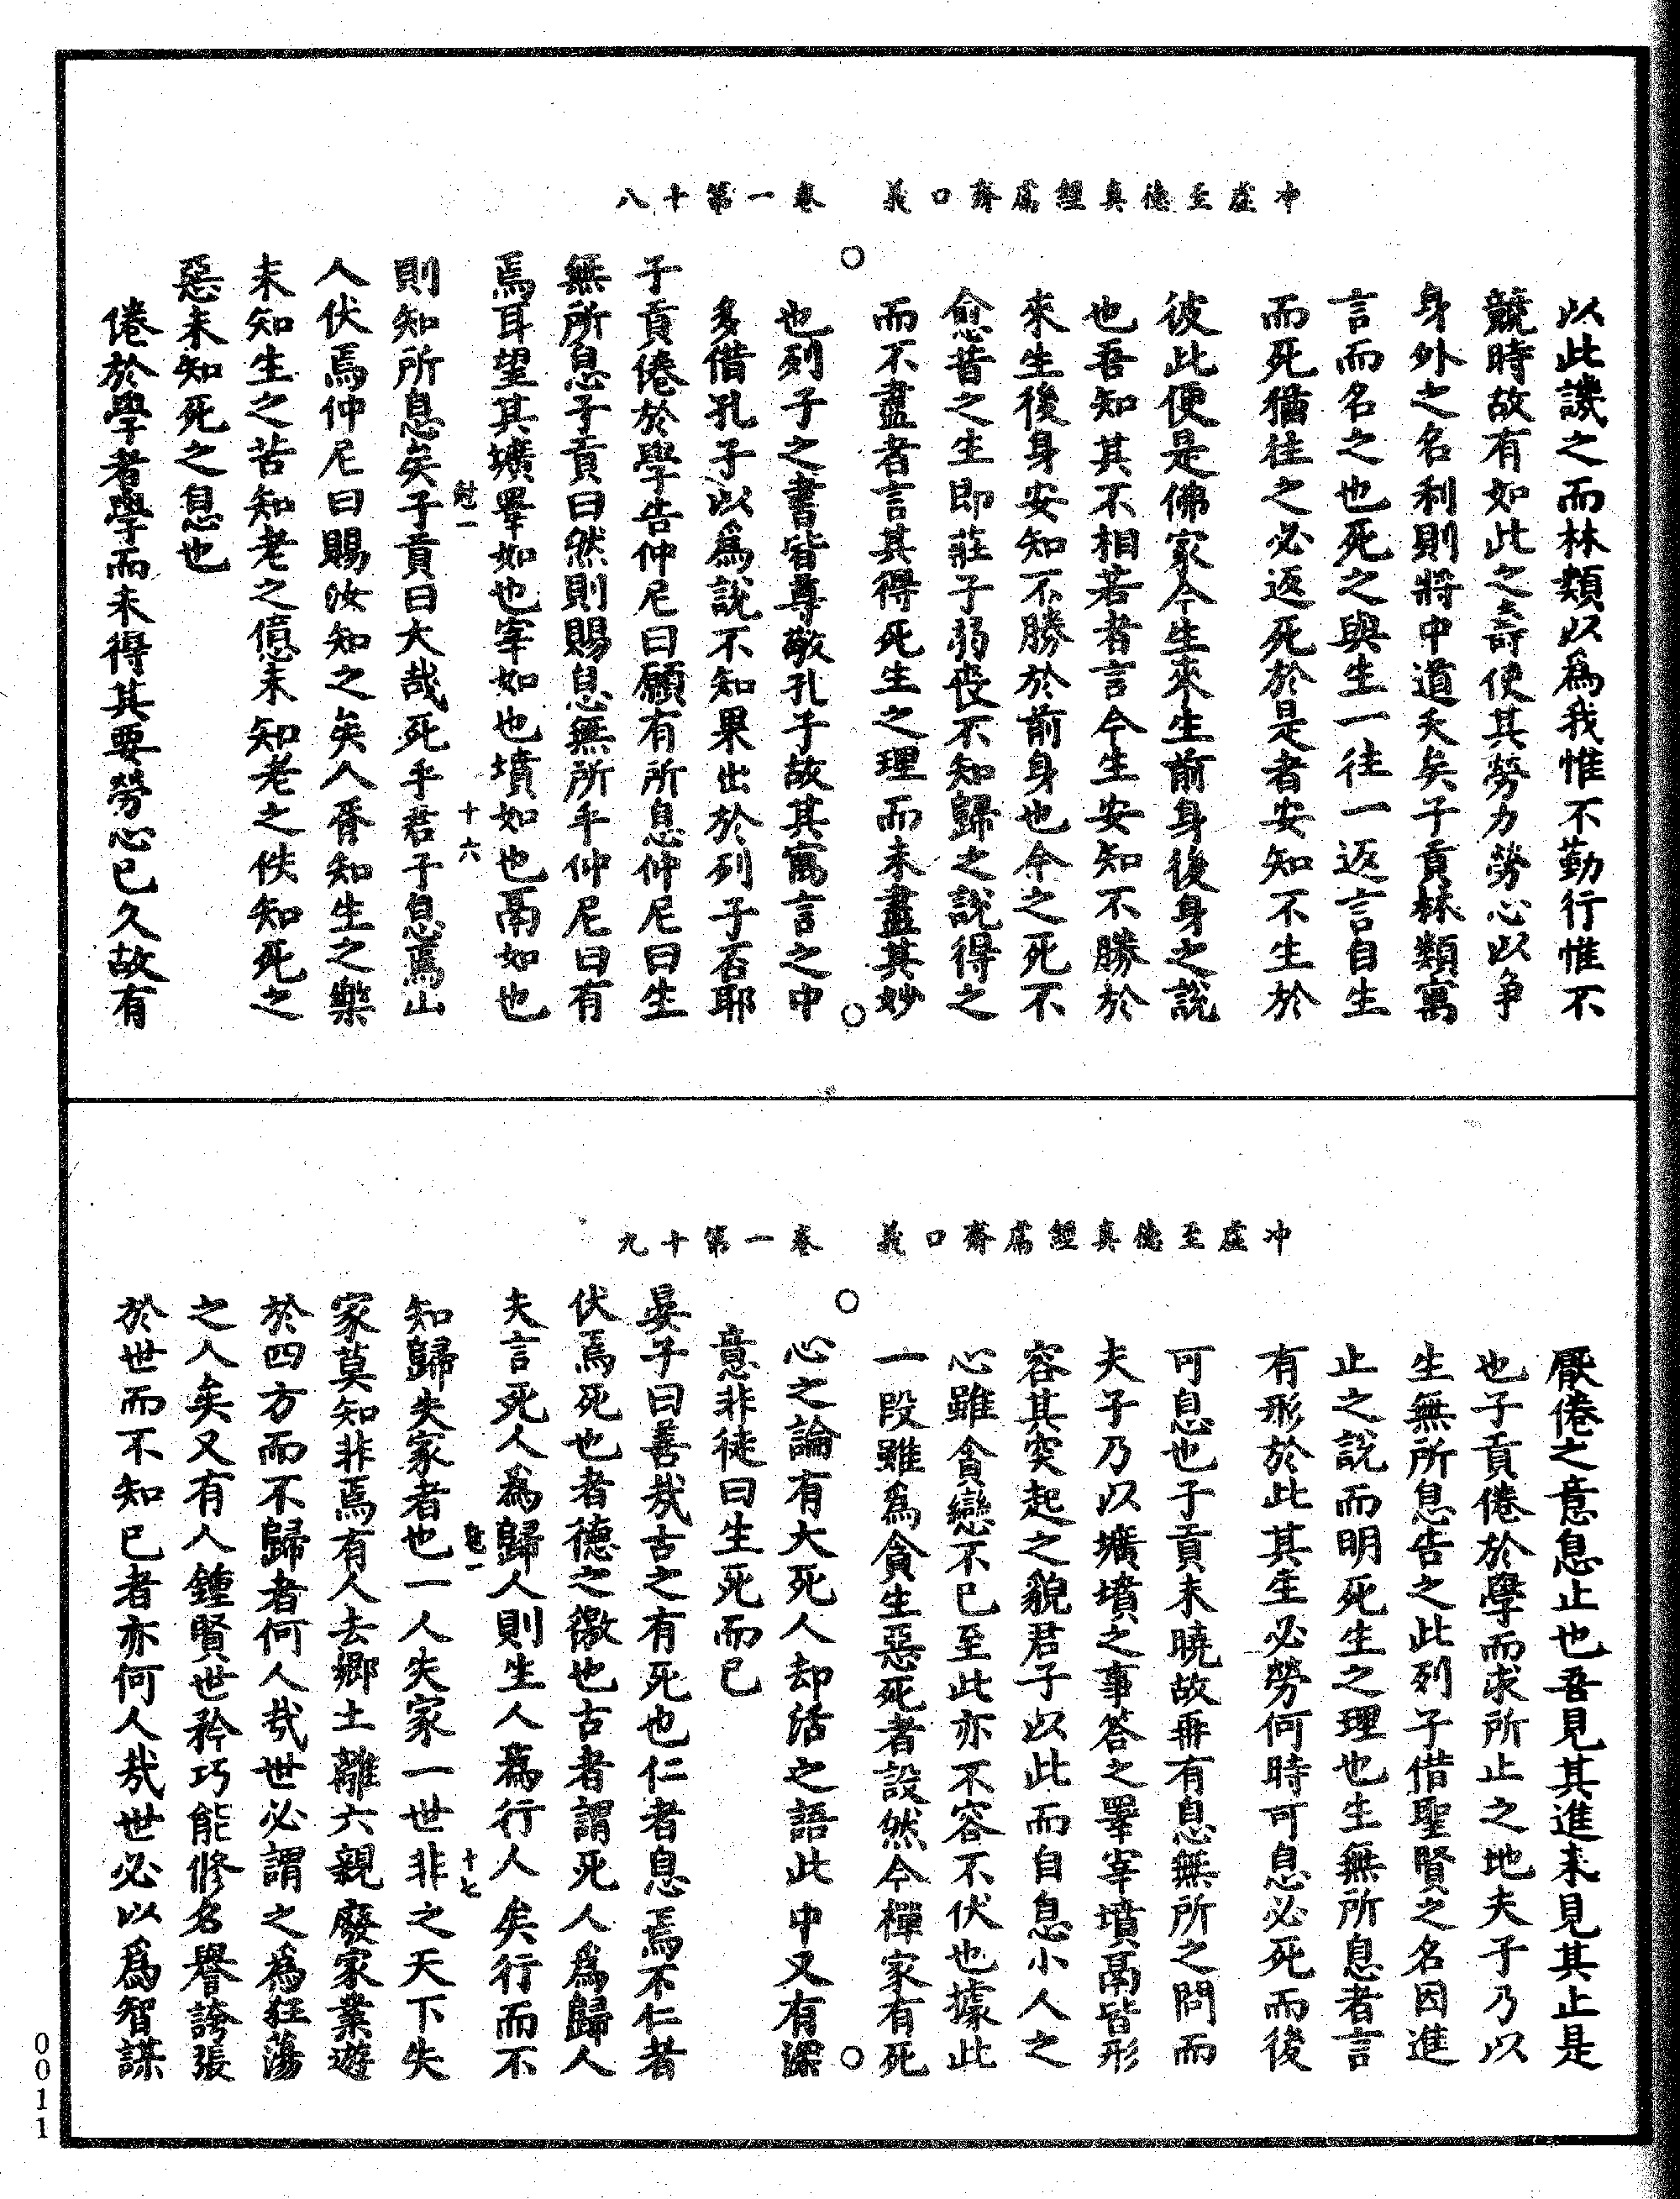 冲虛至德真經鬳齋口義　卷一第十八
以此譏之而林類以爲我惟不勤行惟不
競時故有如此之壽使其勞力勞心以争
身外之名利則將中道夭矣子貢林類寓
言而名之也死之與生一往一返言自生
而死猶往之必返死於是者安知不生於
彼此便是佛家今生來生前身後身之說
也吾知其不相若者言今生安知不勝於
來生後身安知不勝於前身也今之死不
愈昔之生即莊子弱喪不知歸之說得之
而不盡者言其得死生之理而未盡其妙
也列子之書皆尊敬孔子故其寓言之中
多借孔子以爲說不知果出於列子否耶
子貢倦於學告仲尼曰願有所息仲尼曰生
無所息子貢曰然則賜息無所乎仲尼曰有
焉耳望其壙睪如也宰如也墳如也鬲如也
一　十六
則知所息矣子貢曰大哉死乎君子息焉山
人伏焉仲尼曰賜汝知之矣人胥知生之樂
未知生之苦知老之憊未知老之佚知死之
惡未知死之息也
倦於學者學而未得其要勞心已久故有
冲虛至德真經鬳齋口義　卷一第十九
厭倦之意息止也吾見其進未見其止是
也子貢倦於學而求所止之地夫子乃以
生無所息告之此列子借聖賢之名因進
止之說而明死生之理也生無所息者言
有形於此其生必勞何時可息必死而後
可息也子貢未曉故再有息無所之問而
夫子乃以壙墳之事答之睪宰墳鬲皆形
容其突起之貌君子以此而自息小人之
心雖貪戀不已至此亦不容不伏也據此
一段雖爲貪生惡死者設然今樿家有死
心之論有大死人却活之語此中又有深
意非徒曰生死而已
晏子曰善哉古之有死也仁者息焉不仁者
伏焉死也者德之徼也古者謂死人爲歸人
夫言死人爲歸人則生人爲行人矣行而不
一　十七
知歸失家者也一人失家一世非之天下失
家莫知非焉有人去鄉土離六親廢家業遊
於四方而不歸者何人哉世必謂之爲狂蕩
之人矣又有人鍾賢世矜巧能修名譽誇張
於世而不知已者亦何人哉世必以爲智謀
0011